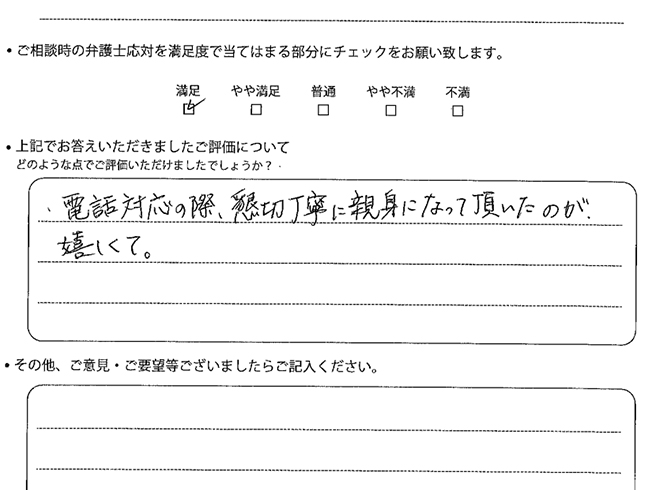 • ご相談時の弁護士応対を満足度で当てはまる部分にチェックをお願い致します。
満足 やや満足 普通 やや不満 不満
☑ □ □ □ □
• 上記でお答えいただきましたご評価について
どのような点でご評価いただけましたでしょうか?
・電話対応の際、懇切丁寧に親身になって頂いたのが、
嬉しくて。
• その他、ご意見・ご要望等ございましたらご記入ください。